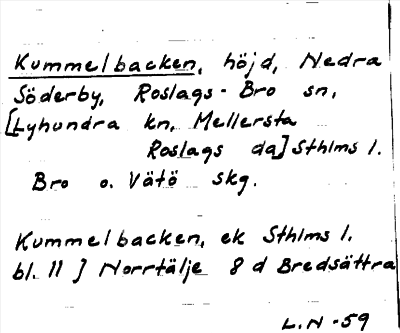 Kummelbacken, höjd, Nedra
Söderby, Roslags-Bro sn,
[Lyhundra kn, Mellersta
Roslags da] Sthlms l.
Bro o. Vätö skg.
Kummelbacken, ek Sthlms l.
bl. 11 ] Norrtälje 8 d Bredsättra
L.N -59